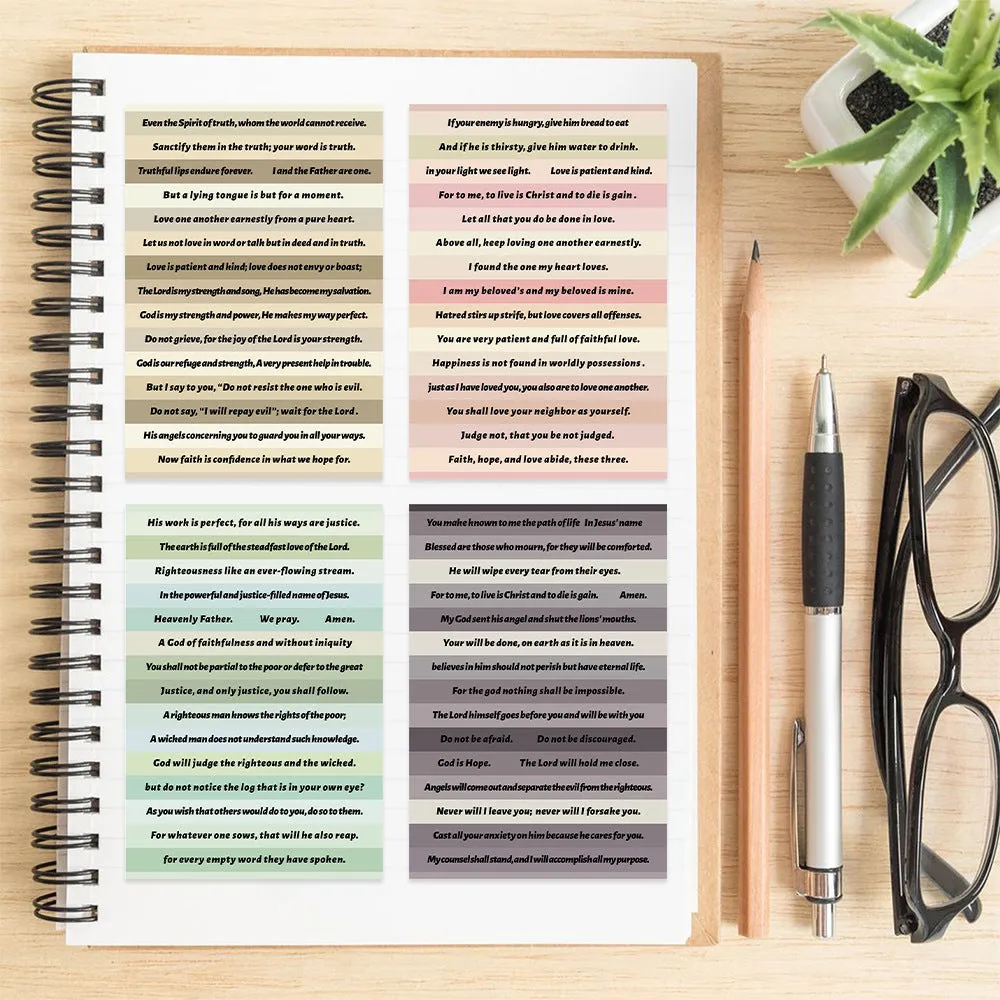 Even the Spirit of truth, whom the world cannot receive.
Sanctify them in the truth; your word is truth.
Truthful lips endure forever. I and the Father are one.
But a lying tongue is but for a moment.
Love one another earnestly from a pure heart.
Let us not love in word or talk but in deed and in truth.
Love is patient and kind; love does not envy or boast;
The Lord is my strength and song, He has become my salvation.
God is my strength and power, He makes my way perfect.
Do not grieve, for the joy of the Lord is your strength.
God is our refuge and strength, A very present help in trouble.
But I say to you, “Do not resist the one who is evil.
Do not say, “I will repay evil”; wait for the Lord.
His angels concerning you to guard you in all your ways.
Now faith is confidence in what we hope for.
If your enemy is hungry, give him bread to eat
And if he is thirsty, give him water to drink.
in your light we see light. Love is patient and kind.
For to me, to live is Christ and to die is gain .
Let all that you do be done in love.
Above all, keep loving one another earnestly.
I found the one my heart loves.
I am my beloved's and my beloved is mine.
Hatred stirs up strife, but love covers all offenses.
You are very patient and full of faithful love.
Happiness is not found in worldly possessions .
just as I have loved you, you also are to love one another.
You shall love your neighbor as yourself.
Judge not, that you be not judged.
Faith, hope, and love abide, these three.
His work is perfect, for all his ways are justice.
The earth is full of the steadfast love of the Lord.
Righteousness like an ever-flowing stream.
In the powerful and justice-filled name of Jesus.
Heavenly Father. We pray. Amen.
A God of faithfulness and without iniquity
You shall not be partial to the poor or defer to the great
Justice, and only justice, you shall follow.
A righteous man knows the rights of the poor;
A wicked man does not understand such knowledge.
God will judge the righteous and the wicked.
but do not notice the log that is in your own eye?
As you wish that others would do to you, do so to them.
For whatever one sows, that will he also reap.
for every empty word they have spoken.
You make known to me the path of life In Jesus' name
Blessed are those who mourn, for they will be comforted.
He will wipe every tear from their eyes.
For to me, to live is Christ and to die is gain. Amen.
My God sent his angel and shut the lions' mouths.
Your will be done, on earth as it is in heaven.
believes in him should not perish but have eternal life.
For the god nothing shall be impossible.
The Lord himself goes before you and will be with you
Do not be afraid. Do not be discouraged.
God is Hope. The Lord will hold me close.
Angels will come out and separate the evil from the righteous.
Never will I leave you; never will I forsake you.
Cast all your anxiety on him because he cares for you.
My counsel shall stand, and I will accomplish all my purpose.